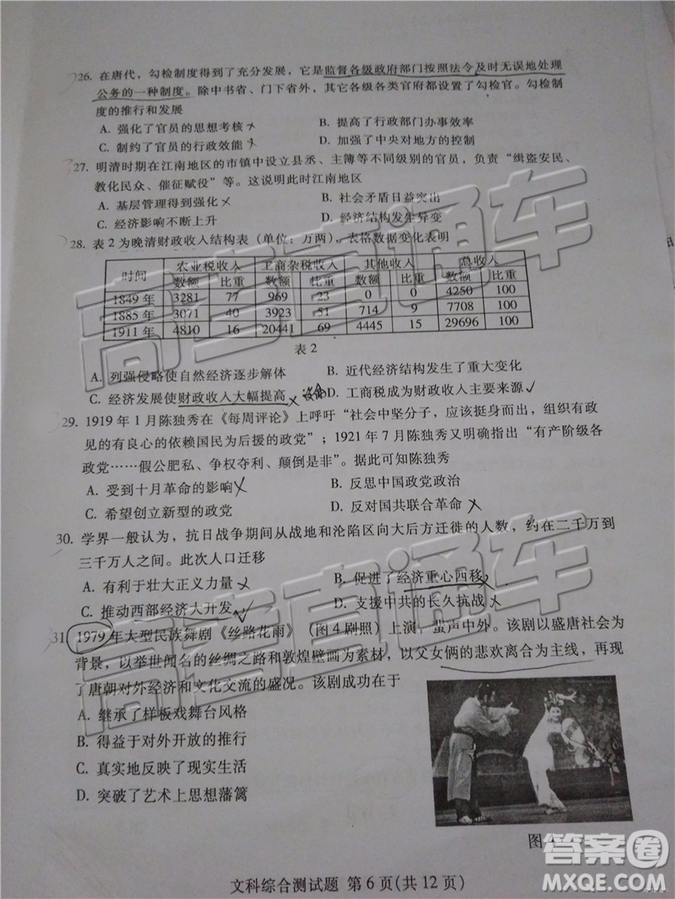 26. 在唐代，勾检制度得到了充分发展，它是监督各级政府部门按照法令及时无误地处理
公务的一种制度。除中书省、门下省外，其它各级各类官府都设置了勾检官。勾检制
度的推行和发展
A. 强化了官员的思想考核 B. 提高了行政部门办事效率
C. 制约了官员的行政效能 D. 加强了中央对地方的控制
27. 明清时期在江南地区的市镇中设立县丞、主簿等不同级别的官员，负责“缉盗安民、
教化民众、催征赋役”等。这说明此时江南地区
A. 基层管理得到强化 B. 社会矛盾日益突出
C. 经济影响不断上升 D. 经济结构发生异变
28. 表2为晚清财政收入结构表（单位：万两），表格数据变化表明
时间 农业税收入 工商杂税收入 其他收入 总收入
数额 比重 数额 比重 数额 比重 数额 比重
1849年 3281 77 969 23 0 0 4250 100
1885年 3071 40 3923 51 714 9 7708 100
1911年 4810 16 20441 69 4445 15 29696 100
表2
A. 列强侵略使自然经济逐步解体 B. 近代经济结构发生了重大变化
C. 经济发展使财政收入大幅提高 D. 工商税成为财政收入主要来源
29. 1919年1月陈独秀在《每周评论》上呼吁“社会中坚分子，应该挺身而出，组织有政
见的有良心的依赖国民为后援的政党”；1921年7月陈独秀又明确指出“有产阶级各
政党……假公肥私、争权夺利、颠倒是非”。据此可知陈独秀
A. 受到十月革命的影响 B. 反思中国政党政治
C. 希望创立新型的政党 D. 反对国共联合革命
30. 学界一般认为，抗日战争期间从战地和沦陷区向大后方迁徙的人数，约在二千万到
三千万人之间。此次人口迁移
A. 有利于壮大正义力量 B. 促进了经济重心西移
C. 推动西部经济大开发 D. 支援中共的长久抗战
31. 1979年大型民族舞剧《丝路花雨》（图4剧照）上演，蜚声中外。该剧以盛唐社会为
背景，以举世闻名的丝绸之路和敦煌壁画为素材，以父女俩的悲欢离合为主线，再现
了唐朝对外经济和文化交流的盛况。该剧成功在于
A. 继承了样板戏舞台风格
B. 得益于对外开放的推行
C. 真实地反映了现实生活
D. 突破了艺术上思想藩篱
图4
文科综合测试题 第6页(共12页)
高考直通车
高考直通车
答案圈
MXQE.COM